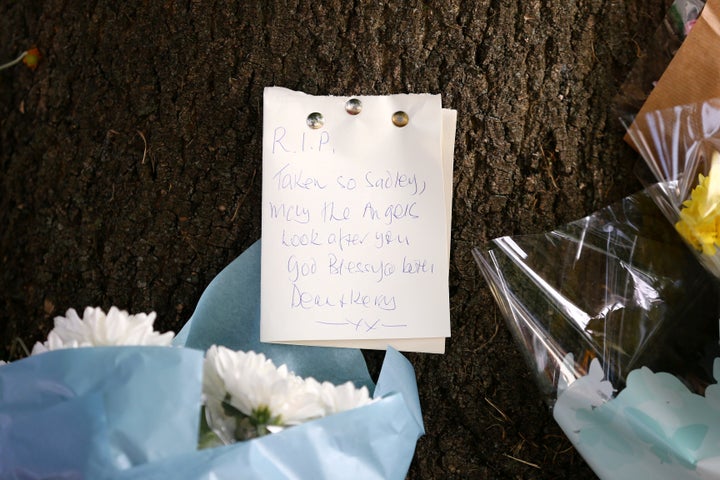 R.I.P.
Taken so sadley,
may the Angels
Look after you
God Bless you both
Dean & Kerry
xx